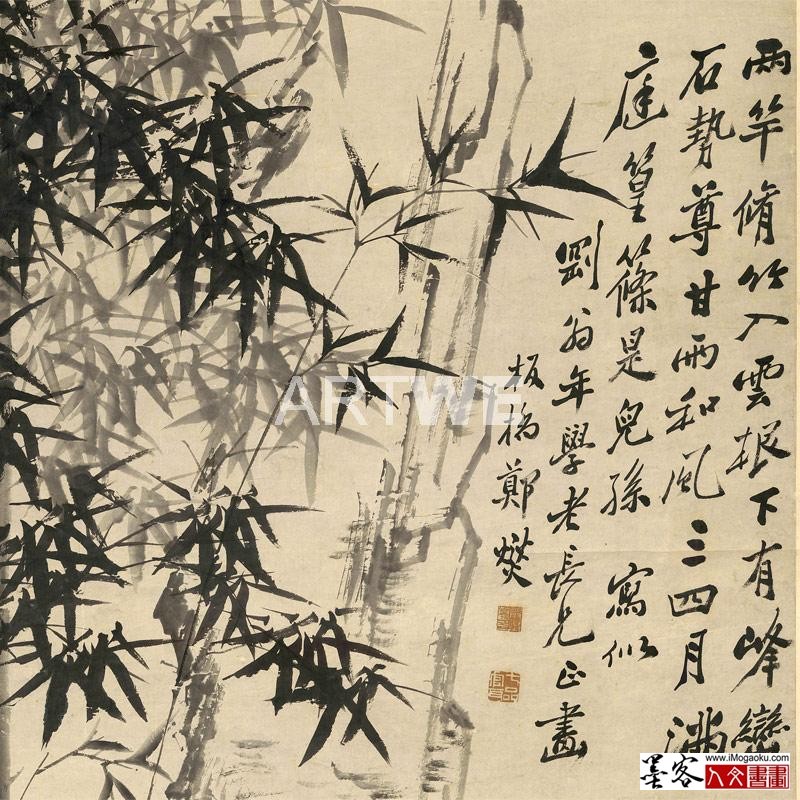 兩竿脩竹入雲根下有峰巒
石勢尊甘雨和風三四月滿
庭篁篠是兒孫 寫似
劉翁年學老長兄正畫
板橋鄭燮
七品官耳
ARTWE
墨客
www.iMogaoku.com
人文書畫